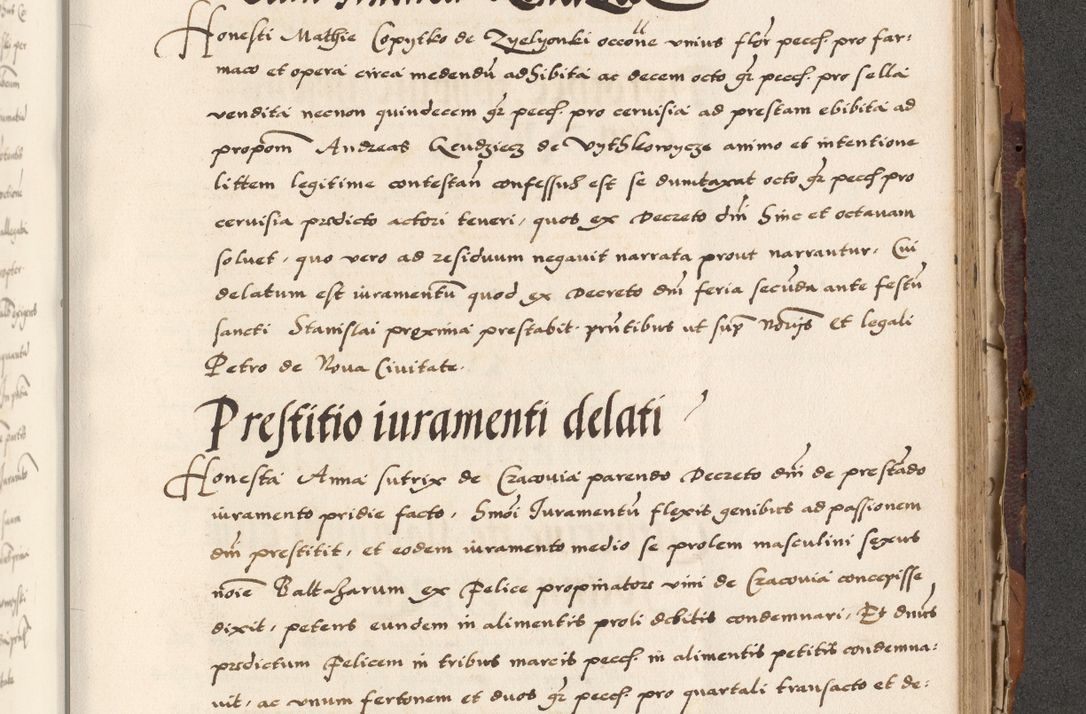 Honesti Mathie Copytko de Zyelyonki occone unius flor pecch. pro far:
maco et opera circa medendu adhibita ac decem octo gr pecch. pro sella
vendita necnon quindecem gr pecch. pro cervisia ad prestam ebibita ad
propom Andreas Gendziecz de Vythkowycze animo et intentione
littem legitime contestan confessus est se dumtaxat octo gr pecch pro
cervisia predicto actori teneri, quos ex Decreto dni hinc et octavam
solvet, quo vero ad residuum negavit narrata prout narrantur, Cui
delatum est iuramentu quod ex Decreto dni feria secuda ante festu
sancti Stanislai proxima prestabit. pntibus ut sup Norijs Et legali
Petro de Nova Civitate.
Prestitio iuramenti delati
Honesta Anna sutrix de Cracovia parendo Decreto dni de prestado
iuramento pridie facto, Smoi Iuramentu flexis genibus ad passionem
dni prestitit, et eodem iuramento medio se prolem masculini sexus
noie Baltazarum ex Felice propinatore vini de Cracovia concepisse
dixit, petens eundem in alimentis proli debitis condemnari, Et dnus
predictum Felicem in tribus marcis pecch. in alimentis petitis condemna:
vit, ac unum fertonem et duos gr pecch. pro quartali transacto et de: